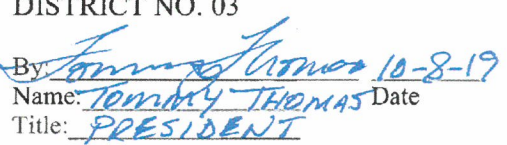 DISTRICT NO. 03
By: Tommy Thomas 10-8-19
Name: TOMMY THOMAS Date
Title: PRESIDENT